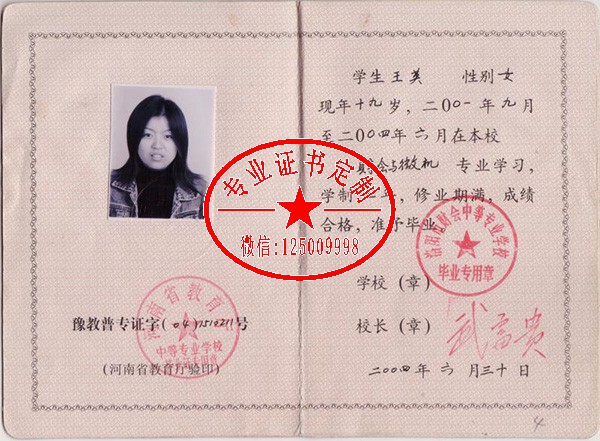 学生王美 性别女
现年十九岁，二00一年九月
至二00四年六月在本校
财会与微机 专业学习，
学制 ，修业期满，成绩
合格，准予毕业。
学校（章）
校长（章）
武富贵
二00四年六月三十日
4
河南省财会中等专业学校
毕业专用章
专业证书定制
微信：125009998
河南省教育
中等专业学校
豫教普专证字（04）号
（河南省教育厅验印）